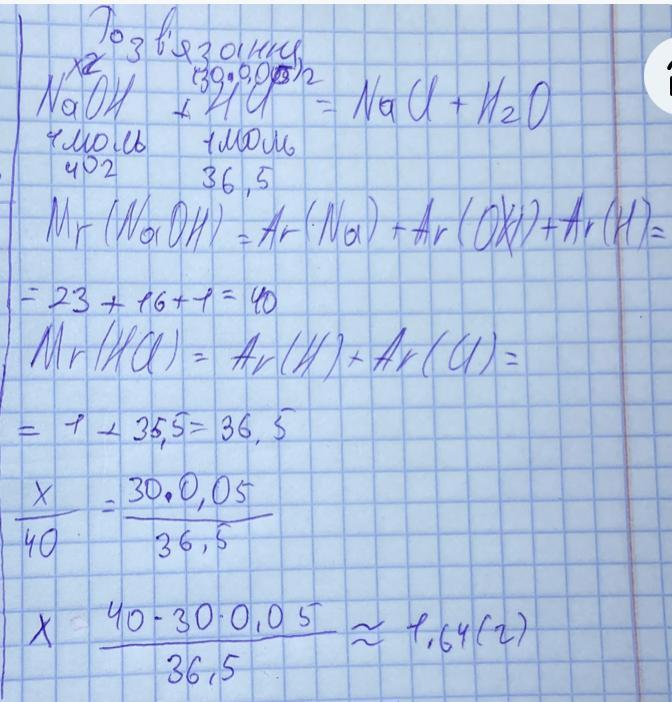 Розв'язання
xг (30·0,05)г
NaOH + HCl = NaCl + H₂O
1моль 1моль
40г 36,5
Mr(NaOH) = Ar(Na) + Ar(O) + Ar(H) =
= 23 + 16 + 1 = 40
Mr(HCl) = Ar(H) + Ar(Cl) =
= 1 + 35,5 = 36,5
x/40 = 30·0,05/36,5
x 40·30·0,05/36,5 ≈ 1,64(г)